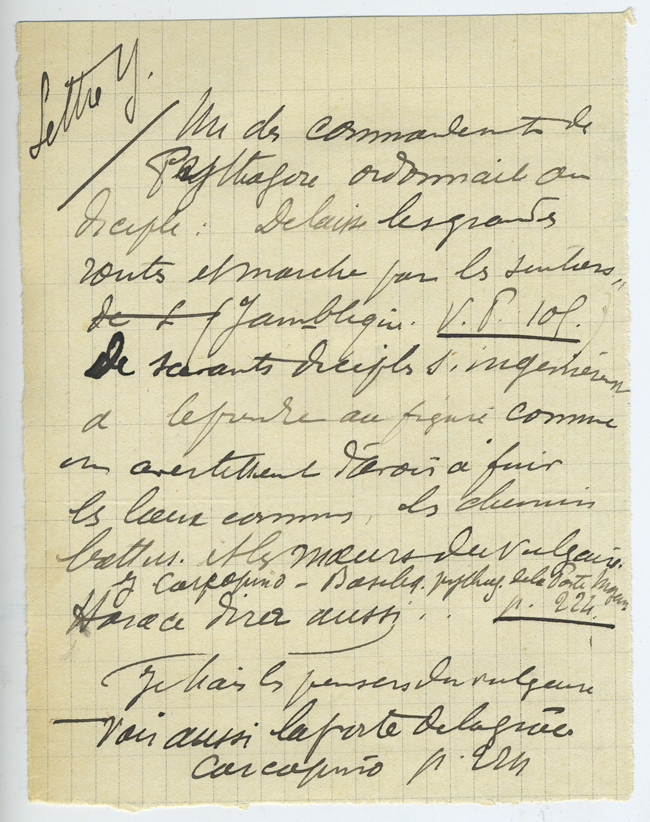 Lettre Y.
Un des commandements de
Pythagore ordonnait au
disciple : Délaisse les grandes
routes et marche par les sentiers "
de L (Jamblique. V. P. 105.)
De savants disciples s'ingénièrent
à le prendre au figuré comme
un avertissement d'avoir à fuir
les lieux communs, les chemins
battus. et les mœurs du vulgaire.
J Carcopino - Basiliq. pythag. de la Porte Majeure
p. 224.
Horace dira aussi . .
Je hais les pensers du vulgaire
Voir aussi la porte de la grâce
Carcopino p. 224